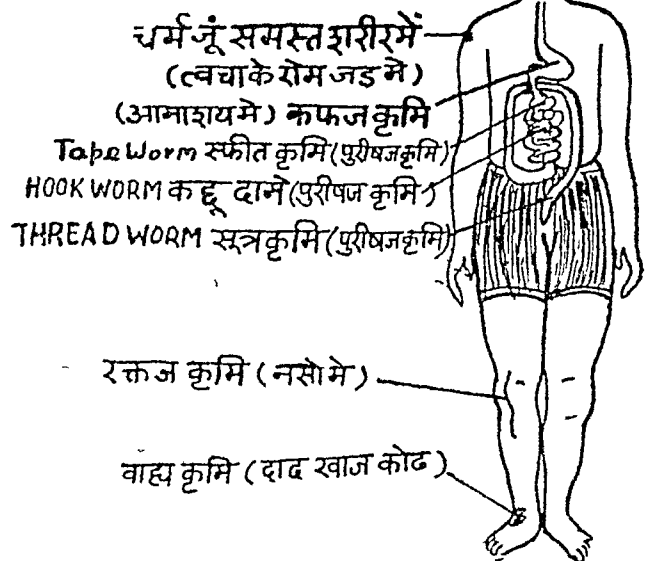 चर्म जूं समस्त शरीर में
(त्वचा के रोम जड मे)
(आमाशय मे) कफज कृमि
Tape Worm स्फीत कृमि (पुरीषज कृमि)
HOOK WORM कद्दू दाने (पुरीषज कृमि)
THREAD WORM सूत्र कृमि (पुरीषज कृमि)
रक्तज कृमि (नसो मे)
वाह्य कृमि (दाद खाज कोढ)